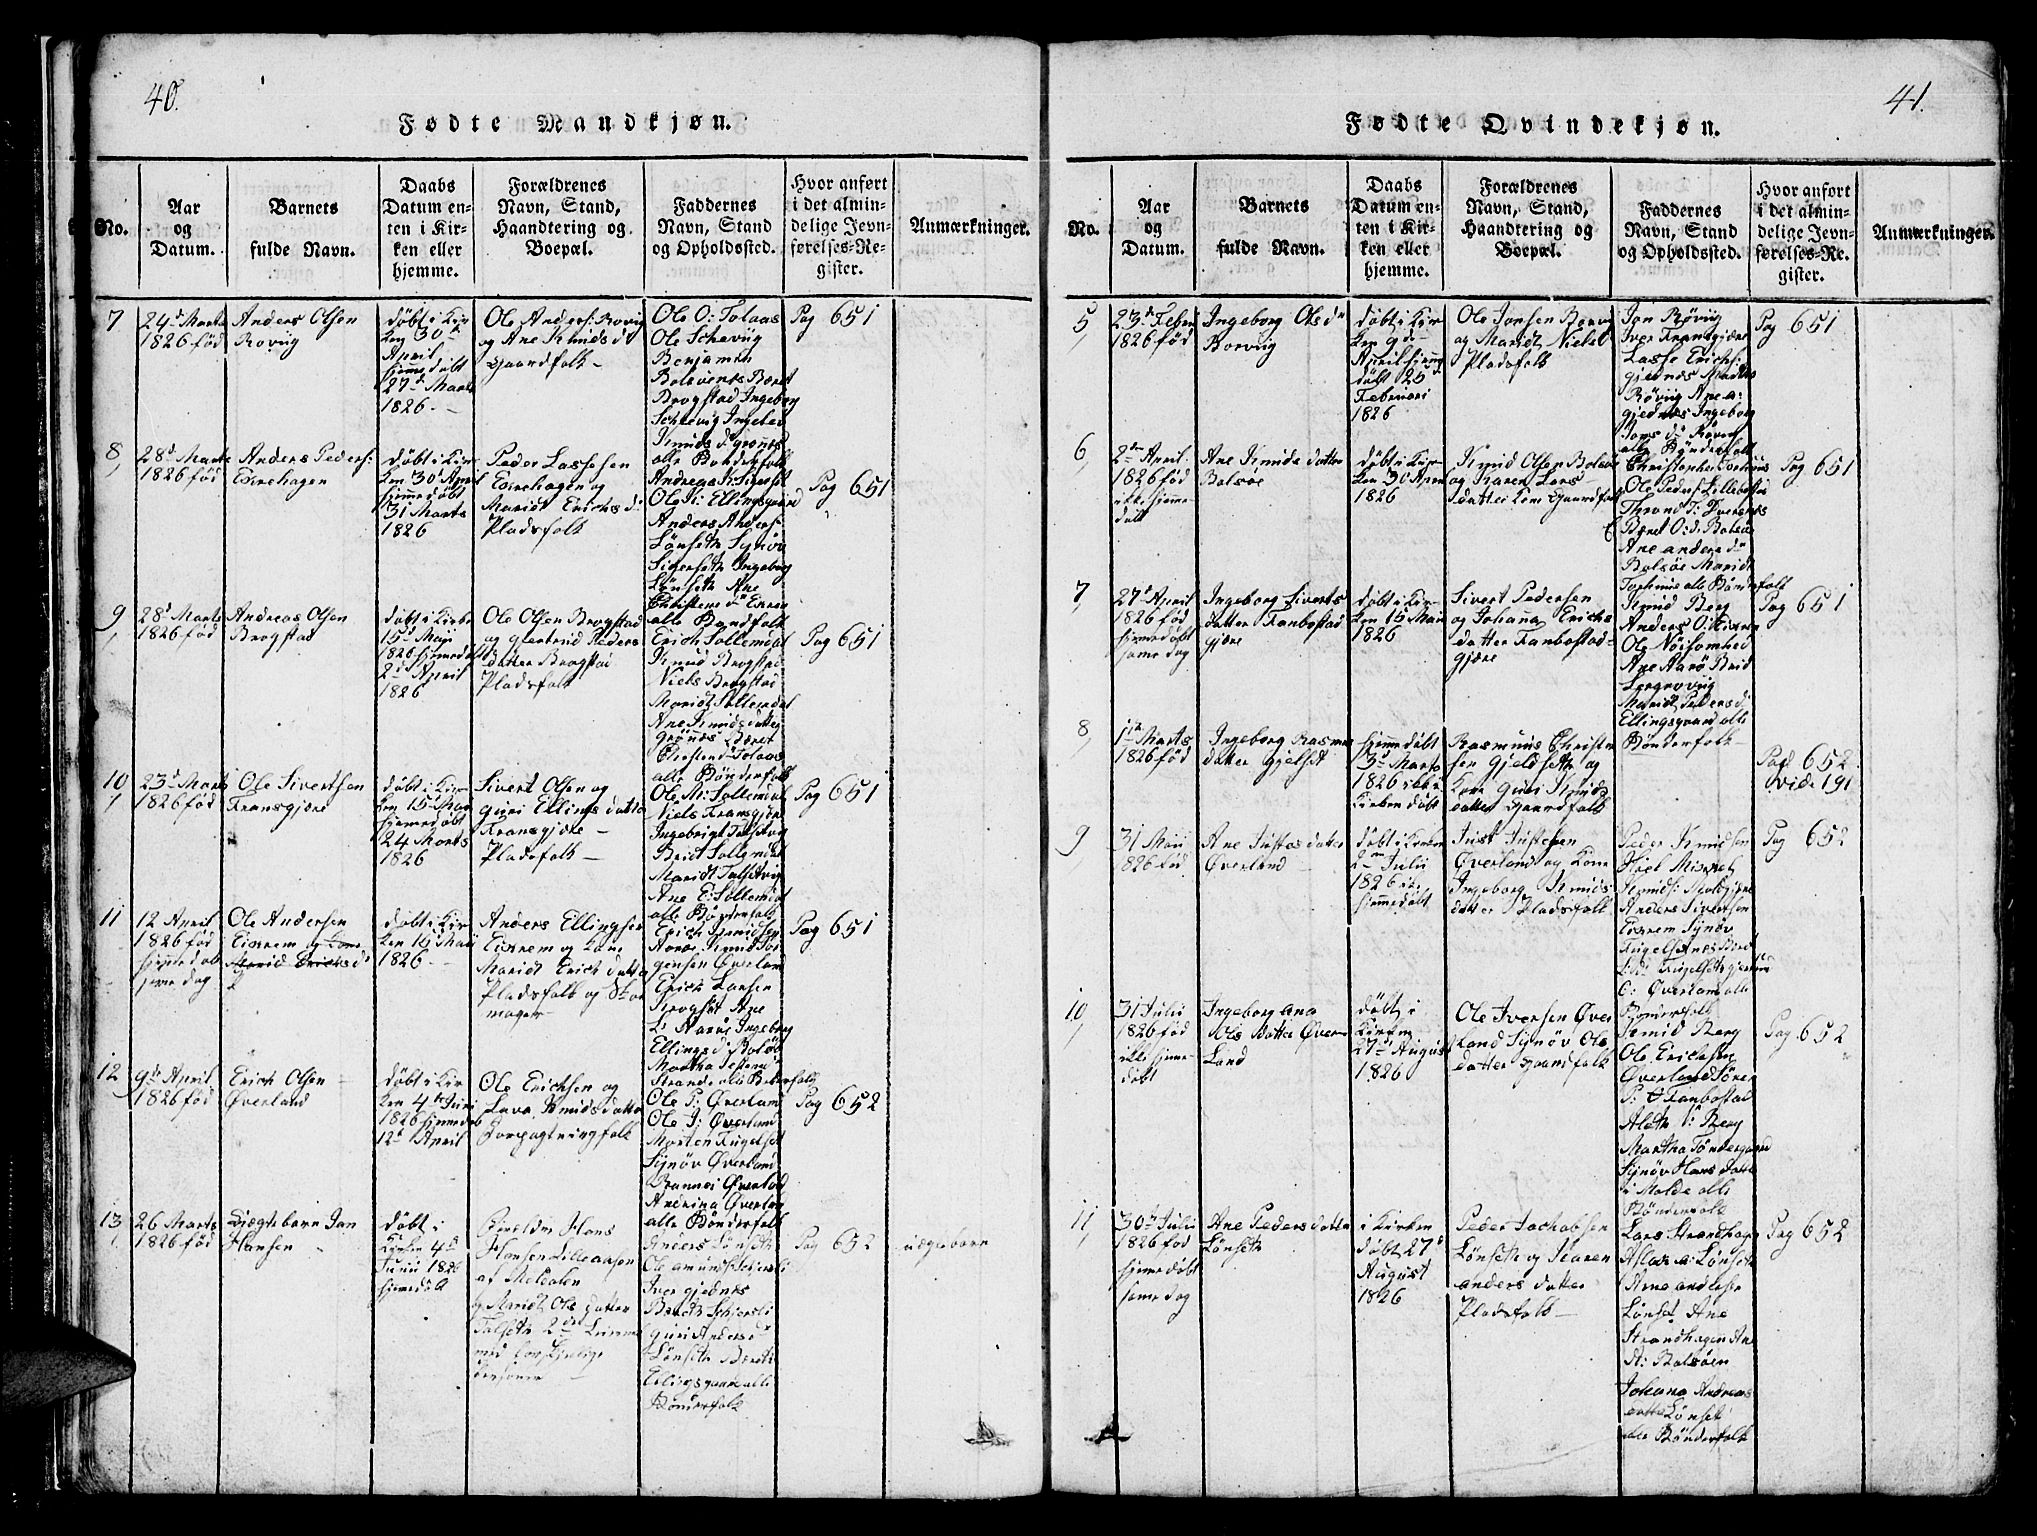 40.
Fødte Mandkjøn.
No.
Aar
og
Datum.
Barnets
fulde Navn.
Daabs
Datum en-
ten i Kir-
ken eller
hjemme.
Forældrenes
Navn, Stand,
Haandtering og
Boepæl.
Faddernes
Navn, Stand
og Opholdssted.
Hvor anført
i det almin-
delige Jevn-
førelses-Re-
gister.
Anmærkninger.
7
24d Marts
1826 fød
Anders Olsen
Rovig
døbt i Kir
ken 30d
April
hjemedøbt
27d Marts
1826
Ole Anders: Rovig
og Ane Knudsd
Gaardfolk
Ole O: Tolaas
Ole Schevug
Benjamin
Bolsvents Beret
Brogstad Ingeborg
Schevig Ingebor
Knuds d: grønnes
alle Bønderfolk
Pag 651
8
28d Marts
1826 fød
Anders Peders:
Eirehagen
døbt i Kir
ken 30 April
hjemedøbt
31 Marts
1826
Peder Lassesen
Eirehagen og
Maridt Erichs d:
Pladsfolk
Ole K: Ellingsgaard
Anders Anders:
Lønseth Synøv
Sigerseth Ingeborg
Lønseth Ane
alle Bøndfolk
Pag 651
9
28d Marts
1826 fød
Andreas Olsen
Brogstad
døbt i Kirke
15d Maji
1826 hjemedøbt
2d April
1826
Ole Olsen Brogstad
og Giertrud Peders
datter Brogstad
Pladsfolk
Erich Sollemdal
Knud Brogstad
Niels Brogstad
Maridt Sollemdal
Ane Knudsdatter
grønnes Beret
alle Bønderfolk
Pag 651
10
23d Marts
1826 fød
Ole Sivertsen
Fransgjære
døbt i Kir
ken 15 Maji
hjemedøbt
24 Marts
1826
Sivert Olsen og
Guri Ellings datter
Fransgjære
Pladsfolk
Ole M: Sollemdal
Niels Fransgjære
Brit Sollemdal
Ane E: Sollemdal
alle Bønderfolk
Pag 651
11
12 April
1826 fød
hjemedøb
samme dag
Ole Andersen
Eikrem og Kone
Marid Erichsd
døbt i Kir
ken 15 Maii
1826
Anders Ellingsen
Eikrem og Kone
Maridt Erich datter
Pladsfolk og Skoe
mager
Erich Knudsen
Aarøe Knud Jør
gensen Øverland
Erich Larsen
Krogset Ane
L: Aarøe Ingeborg
Ellings d: Bolsø
Pag 651
12
9de April
1826 fød
Erich Olsen
Øverland
døbt i Kir
ken 4d Juni
1826 hjemedøb
12d April
Ole Erichsen og
Lava Knudsdatter
Forpagtningfolk
Ole P: Øverland
Ole J: Øverland
Morten Fugelset
Synøv Øverland
Rannei Øverland
Andrina Øverland
alle Bønderfolk
Pag 652
13
26 Marts
1826 fød
Uægtebarn Jan
Hansen
døbt i
Kirken 4d
Junii 1826
hjemedøbt
Forældre Hans
Hansen Lilleaasen
af Meldalen
og Maridt Ols datter
Talseth 2den Leiermaal
med forskjelige
Personer
Anders Lønseth
Ole Amunds:
Iver Gjednes
Guri Anders d
Lønseth Berethe
Ellingsgaard alle
Bønderfolk
Pag 652
uægtebarn
41.
Fødte Qvindekjøn.
No.
Aar
og
Datum.
Barnets
fulde Navn.
Daabs
Datum en-
ten i Kir-
ken eller
hjemme.
Forældrenes
Navn, Stand,
Haandtering og
Boepæl.
Faddernes
Navn, Stand
og Opholdssted.
Hvor anført
i det almin-
delige Jevn-
førelses-Re-
gister.
Anmærkninger.
5
23d Febr
1826 fød
Ingeborg Ols dr
Borvig
døbt i Kir
ken 9de
April hjeme
døbt 25
Februari
1826
Ole Jonsen Borv
og Maridt Niels d
Pladsfolk
Jon Røvig
Iver Fransgjære
Lasse Erichs:
gjednes
Røvig Ane A:
gjednes Ingeborg
alle Bønderfolk
Pag 651
6
2den April
1826 fød
ikke hjeme
døbt
Ane Knuds datter
Bolsøe
døbt i Kir
ken 30 April
1826
Knud Olsen Bolsøe
og Karen Lars
datter Kone Gaardfolk
Ole Peders: Lillebostad
Beret O:d: Bolsøe
Ane Anders d
Bolsøe Maridt
alle Bønderfolk
Pag 651
7
27d April
1826 fød
hjemedøbt
same dag
Ingeborg Siverts
datter Fanbostad
Gjære
døbt i Kir
ken 15 Maii
1826
Sivert Pedersen
og Johana Erichs
datter Fanbostad-
gjære
Knud Berg
Ole Nøisomhed
Ane Aarø Brid
Maridt Peders d:
Ellingsgaard alle
Bønderfolk
Pag 651
8
1te Marts
1826 fød
Ingeborg Rasmus
datter Gjelset
hjemedøbt
3d Marts
1826 ikke i
Kirken døbt
Rasmus Christen
sen Gjeldseth og
Kone Guri Knuds
datter Gaardfolk
Pag 652
vide 191
9
31 Maii
1826 fød
Ane Justas datter
Øverland
døbt i Kirken
2den Julii
1826 ik:
hjemedøbt
Just Justesen
Øverland og Kone
Ingeborg Knuds
datter Pladsfolk
Peder Knudsen
Hoel
Anders Sivertsen
Eikrem Synøv
Øverland alle
Bønderfolk
Pag 652
10
31 Julii
1826 fød
ikke hjeme
døbt
Ingeborg Ana
Ols datter Øver-
Land
døbt i
Kirken
27d August
1826
Ole Iversen Øver
Land Synøv Ols
datter Gaardfolk
Knud Berg
Ole Erichsen
Øverland Søren
P: Fanbostad
Aleth I: Berg
Martha Søndergaard
Synøv Hans datter
i Molde alle
Bønderfolk
Pag 652
11
30te Julii
1826 fød
hjemedøbt
same dag
Ane Peders datter
Lønseth
i Kirken
døbt 27d
August
1826
Peder Jachobsen
Lønseth og Karen
anders datter
Pladsfolk
Lars Strandhagen
Aslak A: Lønseth
Arne andreas
Lønset Ane
Strandhagen Ane
A: Bolsøen
Johana Andreas
datter Lønset
alle Bønderfolk
Pag 652